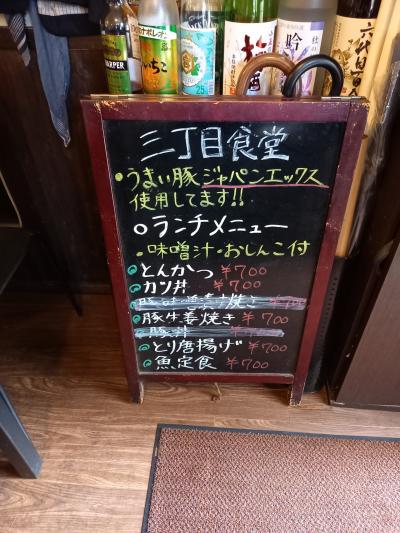 HARPER
ナポレオン
いちご
25
梅酒
吟
六代目百合
三丁目食堂
・うまい豚ジャパンエックス
使用してます!!
○ランチメニュー
・味噌汁・おしんこ付
とんかつ ¥700
カツ丼 ¥700
豚味噌漬け焼き ¥700
豚生姜焼き ¥700
豚丼 ¥700
とり唐揚げ ¥700
魚定食 ¥700